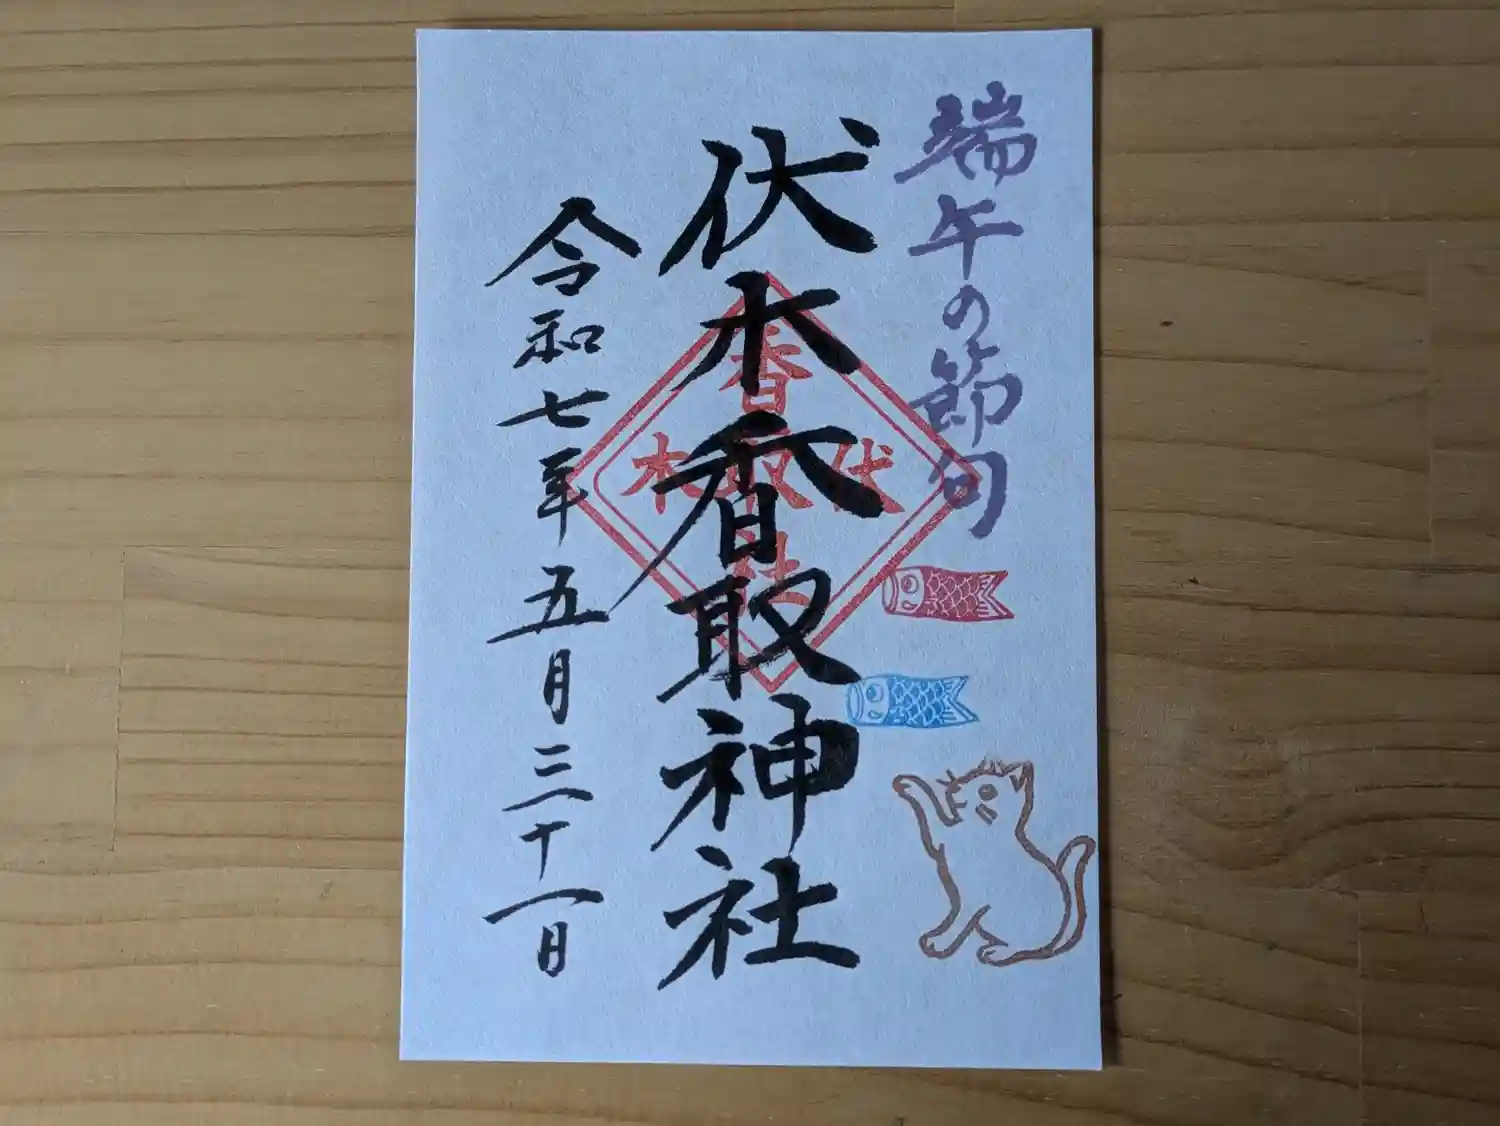 端午の節句
伏木香取神社
香取社
伏木
令和七年五月三十一日